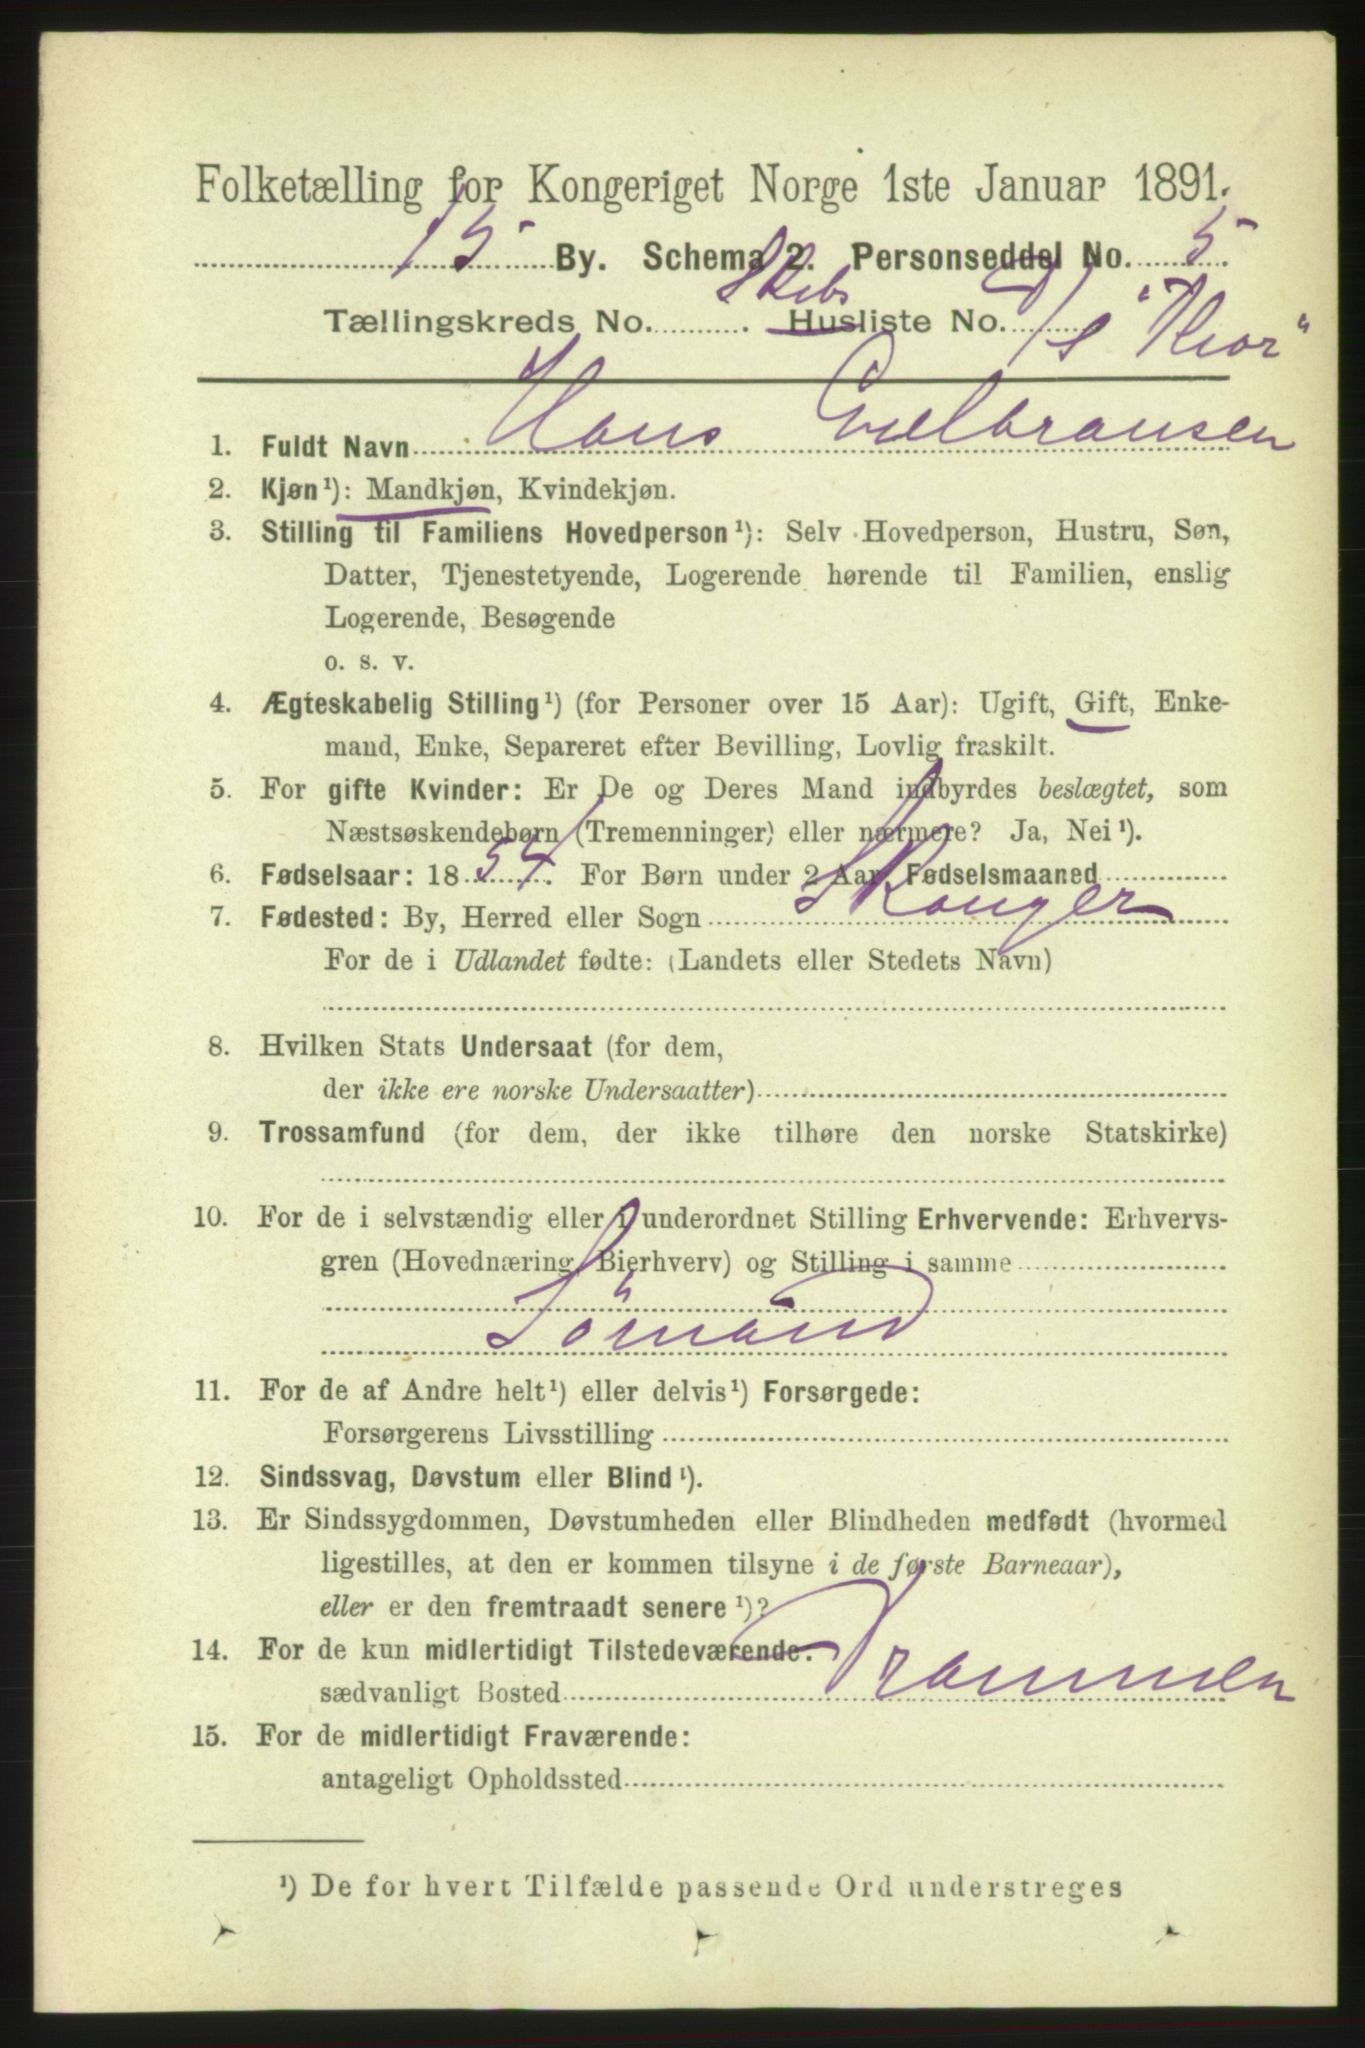 Folketælling for Kongeriget Norge 1ste Januar 1891.
15 By. Schema 2. Personseddel No. 5.
Tællingskreds No. . Skibs Husliste No. D/S "Thor"
1. Fuldt Navn Hans Gulbransen
2. Kjøn¹): Mandkjøn, Kvindekjøn.
3. Stilling til Familiens Hovedperson¹): Selv Hovedperson, Hustru, Søn,
Datter, Tjenestetyende, Logerende hørende til Familien, enslig
Logerende, Besøgende
o. s. v.
4. Ægteskabelig Stilling¹) (for Personer over 15 Aar): Ugift, Gift, Enke-
mand, Enke, Separeret efter Bevilling, Lovlig fraskilt.
5. For gifte Kvinder: Er De og Deres Mand indbyrdes beslægtet, som
Næstsøskendebørn (Tremenninger) eller nærmere? Ja, Nei¹).
6. Fødselsaar: 1854. For Børn under 2 Aar, Fødselsmaaned
7. Fødested: By, Herred eller Sogn Skouger
For de i Udlandet fødte: (Landets eller Stedets Navn)
8. Hvilken Stats Undersaat (for dem,
der ikke ere norske Undersaatter)
9. Trossamfund (for dem, der ikke tilhøre den norske Statskirke)
10. For de i selvstændig eller i underordnet Stilling Erhvervende: Erhvervs-
gren (Hovednæring, Bierhverv) og Stilling i samme
Sömand
11. For de af Andre helt¹) eller delvis¹) Forsørgede:
Forsørgerens Livsstilling
12. Sindssvag, Døvstum eller Blind¹).
13. Er Sindssygdommen, Døvstumheden eller Blindheden medfødt (hvormed
ligestilles, at den er kommen tilsyne i de første Barneaar),
eller er den fremtraadt senere¹)?
14. For de kun midlertidigt Tilstedeværende:
sædvanligt Bosted Drammen
15. For de midlertidigt Fraværende:
antageligt Opholdssted
¹) De for hvert Tilfælde passende Ord understreges